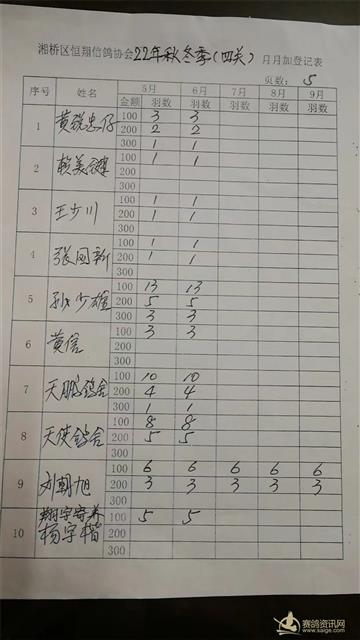 湘桥区恒翔信鸽协会22年秋冬季(四关)月月加登记表
页数: 5
序号 姓名 5月 6月 7月 8月 9月
金额 羽数 羽数 羽数 羽数 羽数
1 黄锐忠仔 100 3 3
200 2 2
300 1 1
2 赖美 100 1 1
200
300
3 王少川 100 1 1
200 1 1
300
4 张国新 100 1 1
200 1 1
300
5 孙少雄 100 13 13
200 5 5
300 3 3
6 黄信 100 3 3
200
300
7 天鹏鸽舍 100 10 10
200 4 4
300 1 1
8 天使鸽舍 100 8 8
200 5 5
300
9 刘朝旭 100 6 6 6 6 6
200 3 3 3 3 3
10 翔宇寄养 100 5 5
杨宇楷 200
300
赛鸽资讯网
www.saige.com